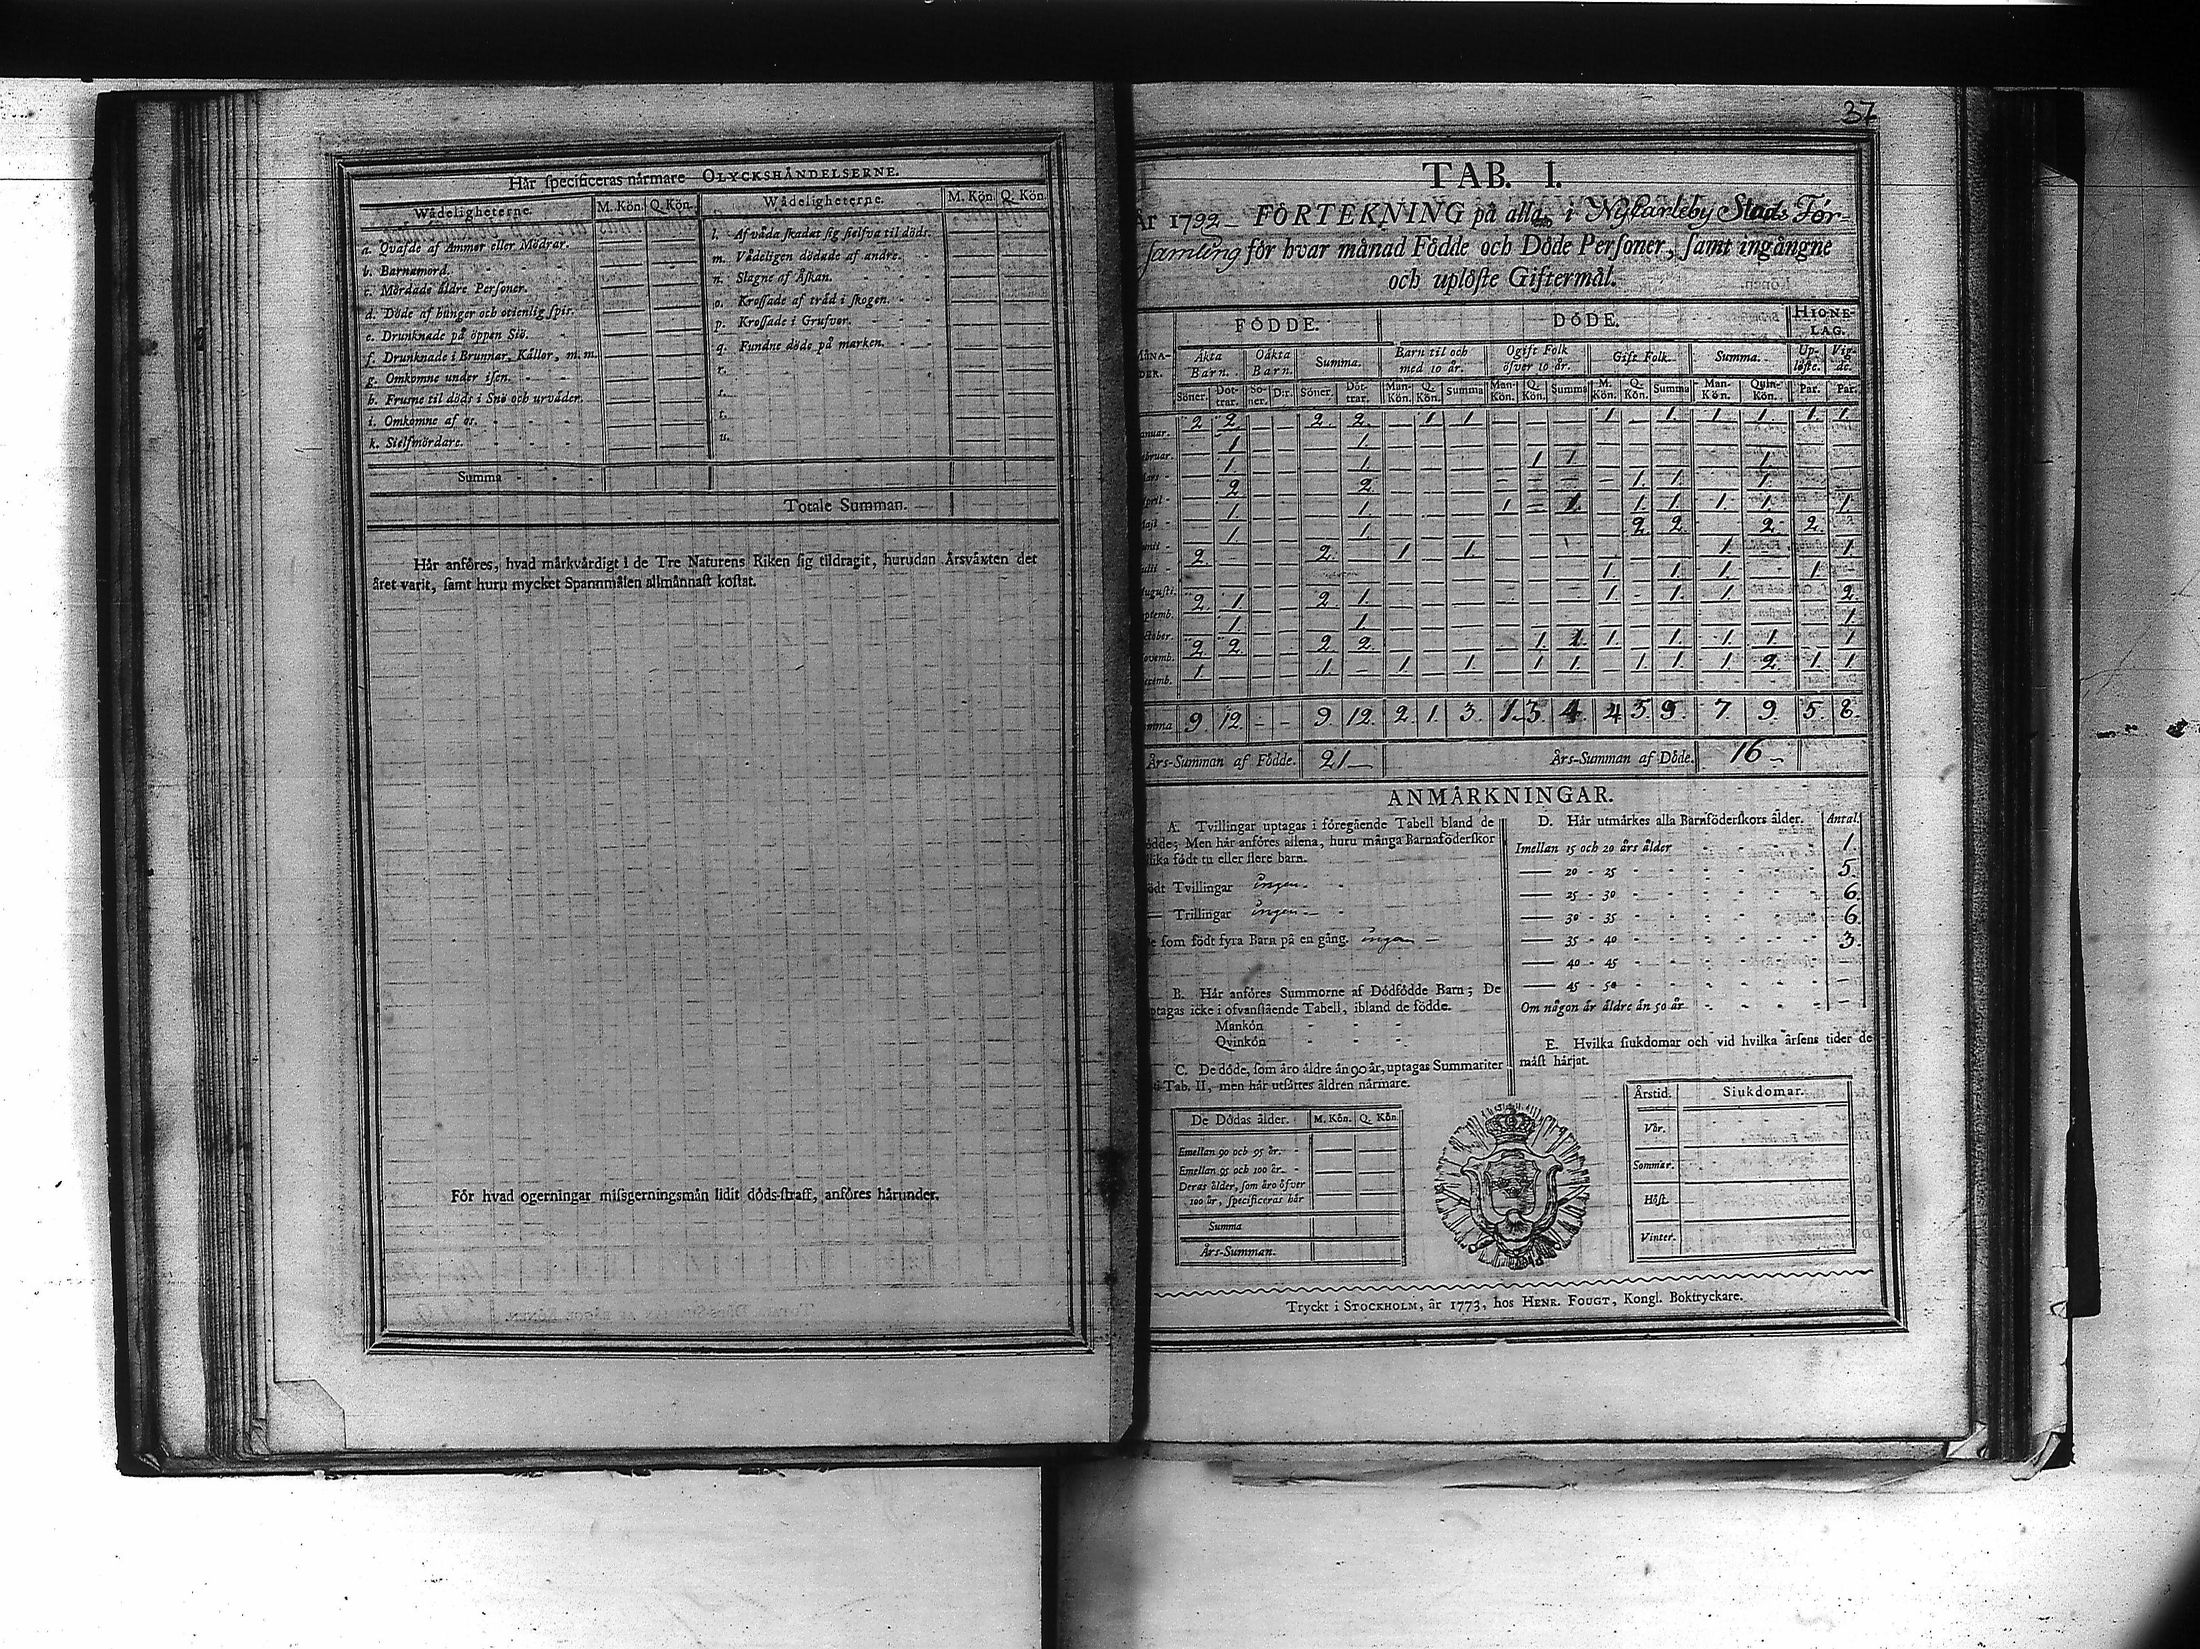 Hår specificeras nårmare OLYCKSHÅNDELSERNE.
Wådeligheterne. M. Kön. Q. Kön. Wådeligheterne. M. Kön. Q. Kön.
a. Qvafde af Ammor eller Mödrar.
b. Barnamord.
c. Mördade åldre Personer.
d. Döde af hunger och otienlig spis.
e. Drunknade på öppen Siö.
f. Drunknade i Brunnar, Kållor, m. m.
g. Omkomne under isen.
h. Frusne til döds i Snö och urvåder.
i. Omkomne af os.
k. Sielfmördare.
l. Af våda skadat sig sielfva til döds.
m. Vådeligen dödade af andre.
n. Slagne af Åskan.
o. Krossade af tråd i skogen.
p. Krossade i Grufvor.
q. Fundne döde på marken.
r.
s.
t.
u.
Summa
Totale Summan.
Hår anföres, hvad mårkvårdigt i de Tre Naturens Riken sig tildragit, hurudan Årsvåxten det
året varit, samt huru mycket Spannmålen allmånnast kostat.
För hvad ogerningar missgerningsmån lidit döds-straff, anföres hårunder.
37
TAB. I.
År 1792 FÖRTEKNING på alla i Nykarleby Stads För-
samling för hvar månad Födde och Döde Personer, samt ingångne
och uplöste Giftermål.
FÖDDE. DÖDE. HIONE-
LAG.
MÅNA-
DER. Åkta
Barn. Oåkta
Barn. Summa. Barn til och
med 10 år. Ogift Folk
öfver 10 år. Gift Folk. Summa. Up-
löste. Vig-
de.
Söner. Döt-
trar. Sö-
ner. D:r. Söner. Döt-
trar. Man-
Kön. Q.
Kön. Summa Man-
Kön. Q.
Kön. Summa M.
Kön. Q.
Kön. Summa Man-
Kön. Quin-
Kön. Par. Par.
anuar. 2 2 2 2 1 1 1 1 1 1 1 1
bruar. 1 1
ars 1 1 1 1 1
pril 2 2 1 1 1
aji 1 1 1 1 1 1 1 1 1
unii 1 1 2 2 2 2
ulii 2 2 1 1 1 1
ugusti. 1 1 1 1
ptemb. 2 1 2 1 1 1 1 2
ctober. 1 1 1
ovemb. 2 2 2 2 1 1 1 1 1 1 1
ecemb. 1 1 1 1 1 1 1 1 1 2 1 1
mma 9 12 9 12 2 1 3 1 3 4 4 5 9 7 9 5 8
Års-Summan af Födde. 21 Års-Summan af Döde. 16
ANMÅRKNINGAR.
A. Tvillingar uptagas i föregående Tabell bland de
ödde; Men hår anföres allena, huru många Barnaföderskor
lika födt tu eller flere barn.
ödt Tvillingar ingen
Trillingar ingen
e som födt fyra Barn på en gång. ingen
B. Hår anföres Summorne af Dödfödde Barn; De
ptagas icke i ofvanstående Tabell, ibland de födde.
Mankön
Qvinkön
C. De döde, som åro åldre ån 90 år, uptagas Summariter
Tab. II, men hår utsåttes åldren nårmare.
De Dödas ålder. M. Kön. Q. Kön.
Emellan 90 och 95 år.
Emellan 95 och 100 år.
Deras ålder, som åro öfver
100 år, specificeras hår
Summa
Års-Summan.
D. Hår utmårkes alla Barnföderskors ålder. Antal.
Imellan 15 och 20 års ålder 1
20 - 25 5
25 - 30 6
30 - 35 6
35 - 40 3
40 - 45
45 - 50
Om någon år åldre ån 50 år
E. Hvilka siukdomar och vid hvilka årsens tider de
måst hårjat.
Årstid. Siukdomar.
Vår.
Sommar.
Höst.
Vinter.
Tryckt i STOCKHOLM, år 1773, hos HENR. FOUGT, Kongl. Boktryckare.